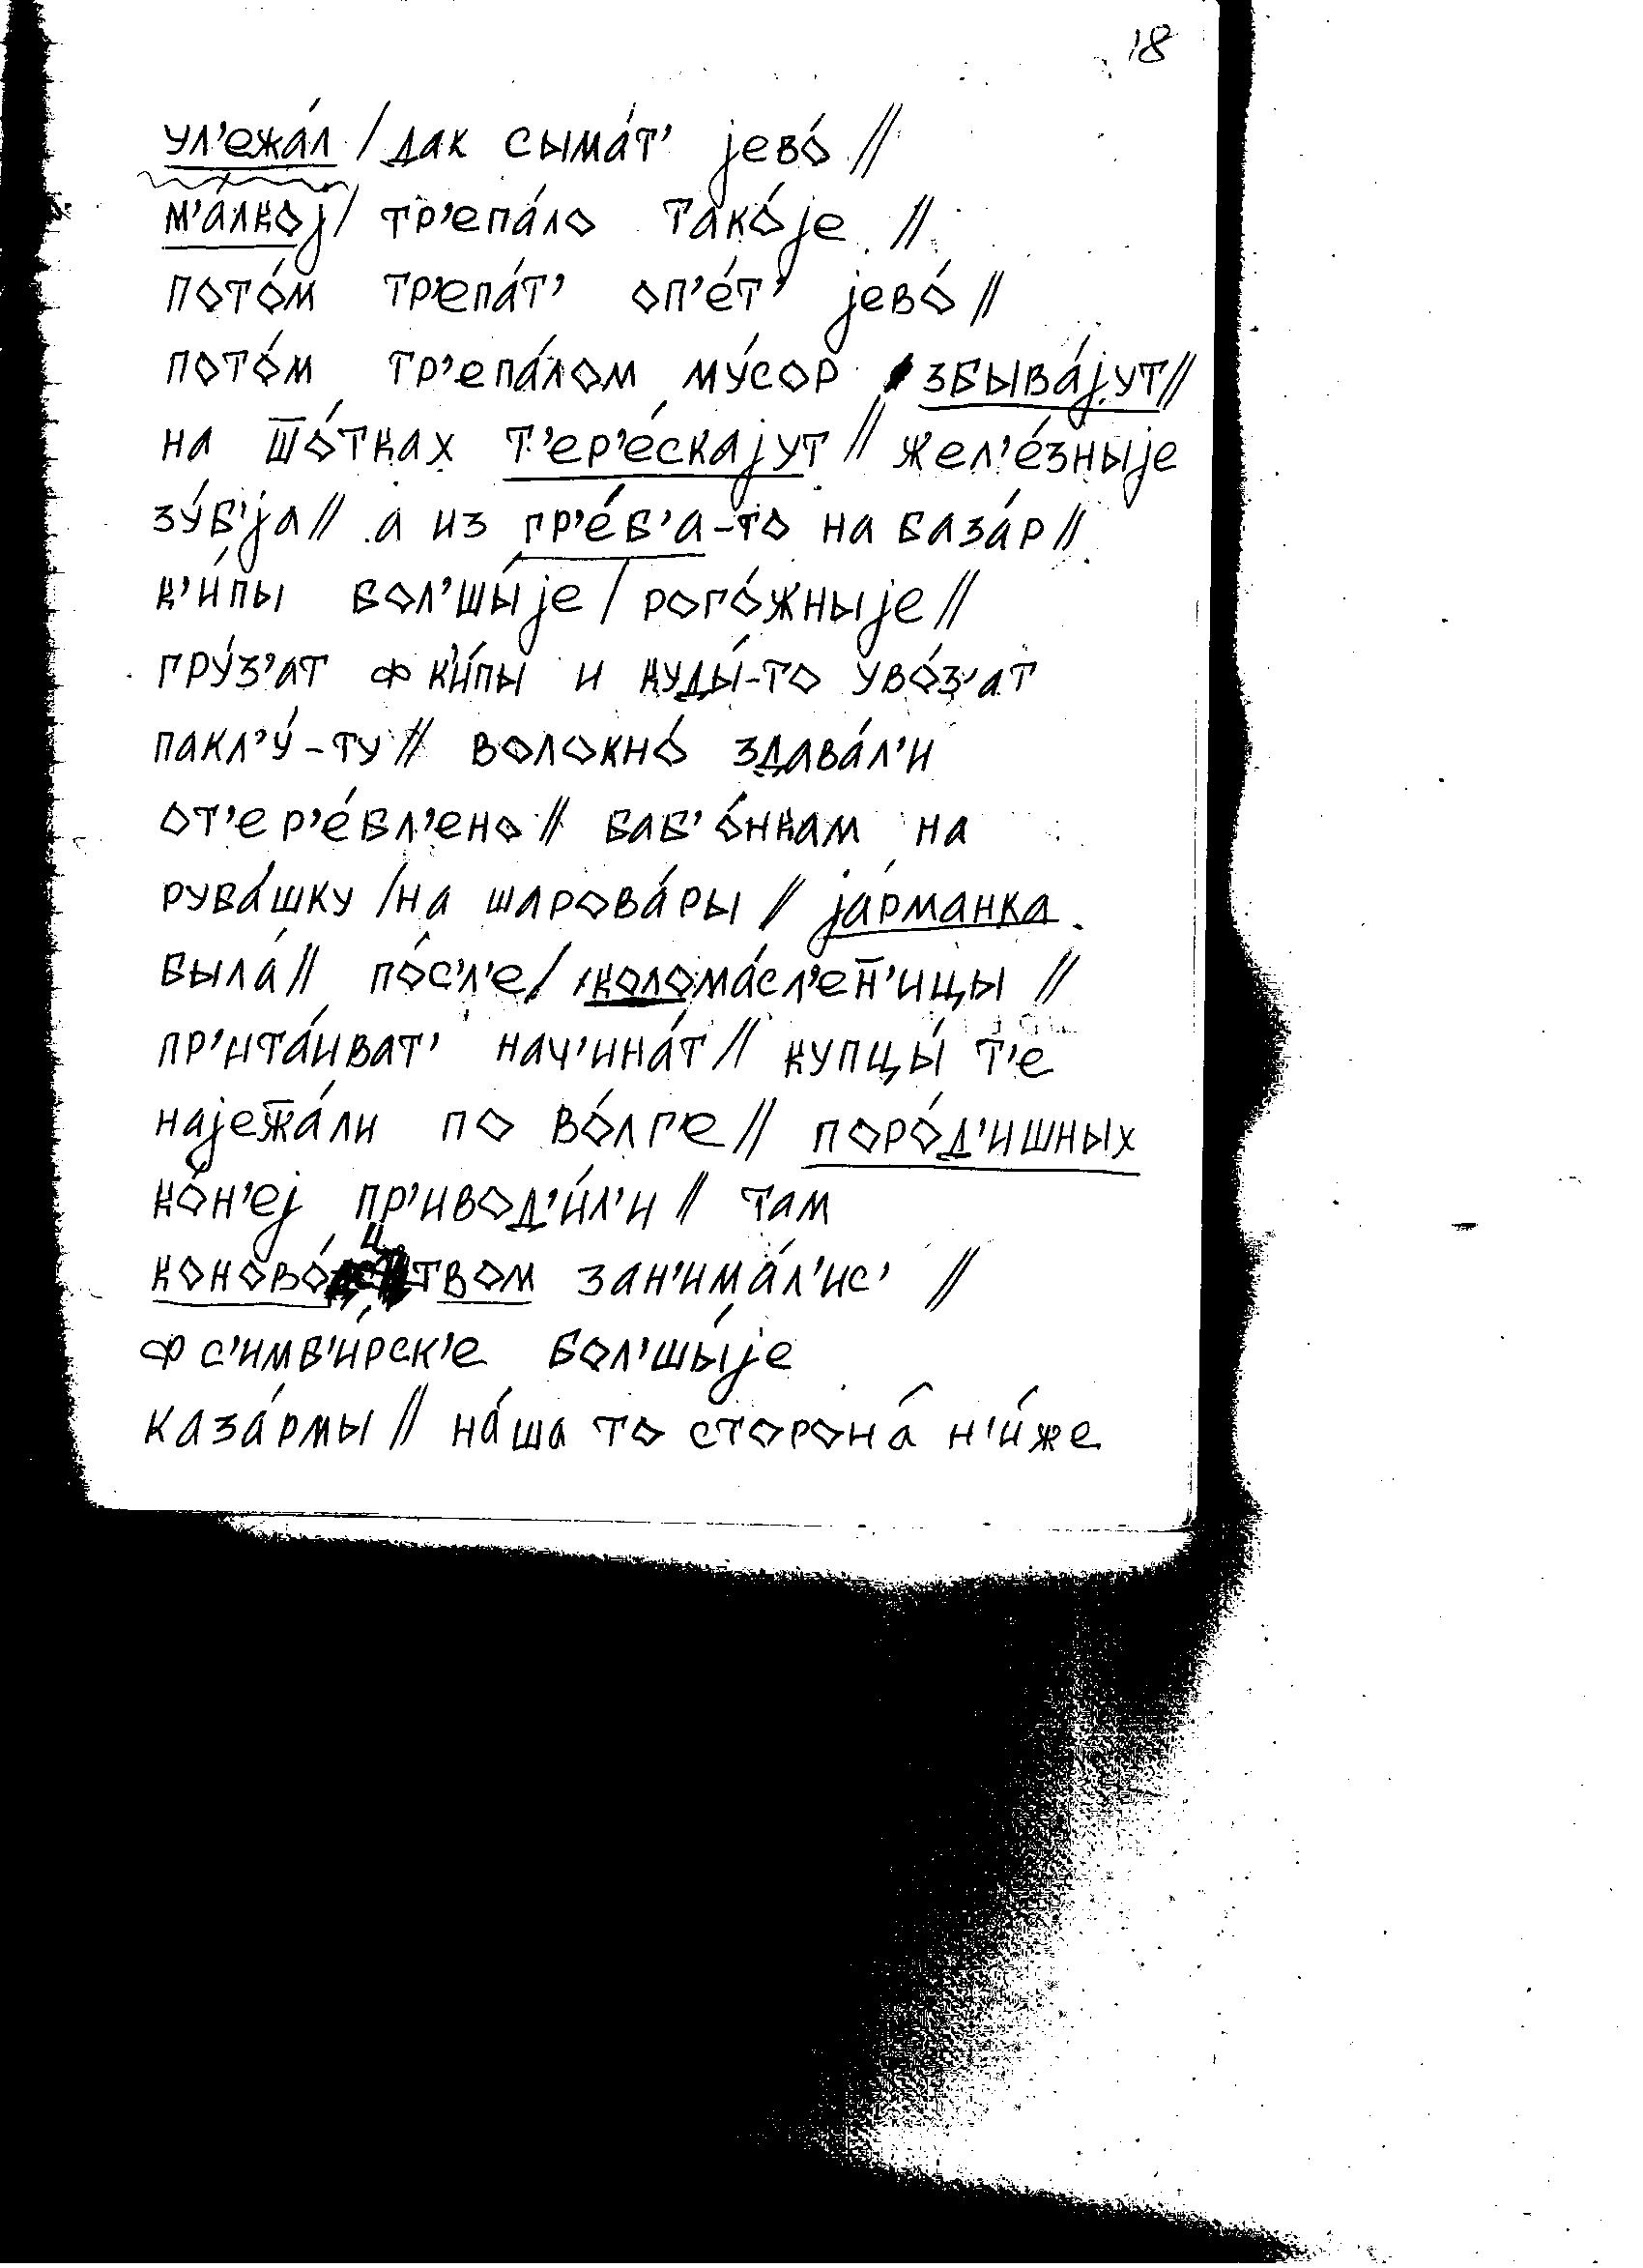 18
ул'ежа́л / дак сыма́т' jево́ //
м'а́лкоj / тр'епа́ло тако́jе //
пото́м тр'епа́т' оп'е́т' jево́ //
пото́м тр'епа́лом му́сор збыва́jут //
на ш̅о́тках т'ер'е́скаjут // жел'е́зныjе
зу́б'jа // а из гр'е́б'а-то на база́р //
к'и́пы бол'шы́jе / рого́жныjе //
гру́з'ат ф к'и́пы и куды́-то уво́з'ат
пакл'у́-ту // волокно́ здава́л'и
от'ер'е́бл'ено // баб'о́нкам на
руба́шку / на шарова́ры // jа́рманка
была́ // по́с'л'е / коло ма́сл'ен̅'ицы //
пр'ита́иват' нач'ина́т // купцы́ т'е
наjеж̅а́ли по во́лге // поро́д'ишных
ко́н'еj пр'ивод'и́л'и // там
коново́цтвом зан'има́л'ис' //
ф с'имб'и́рск'е бол'шы́jе
каза́рмы // на́ша то сторона̂ н'и́же